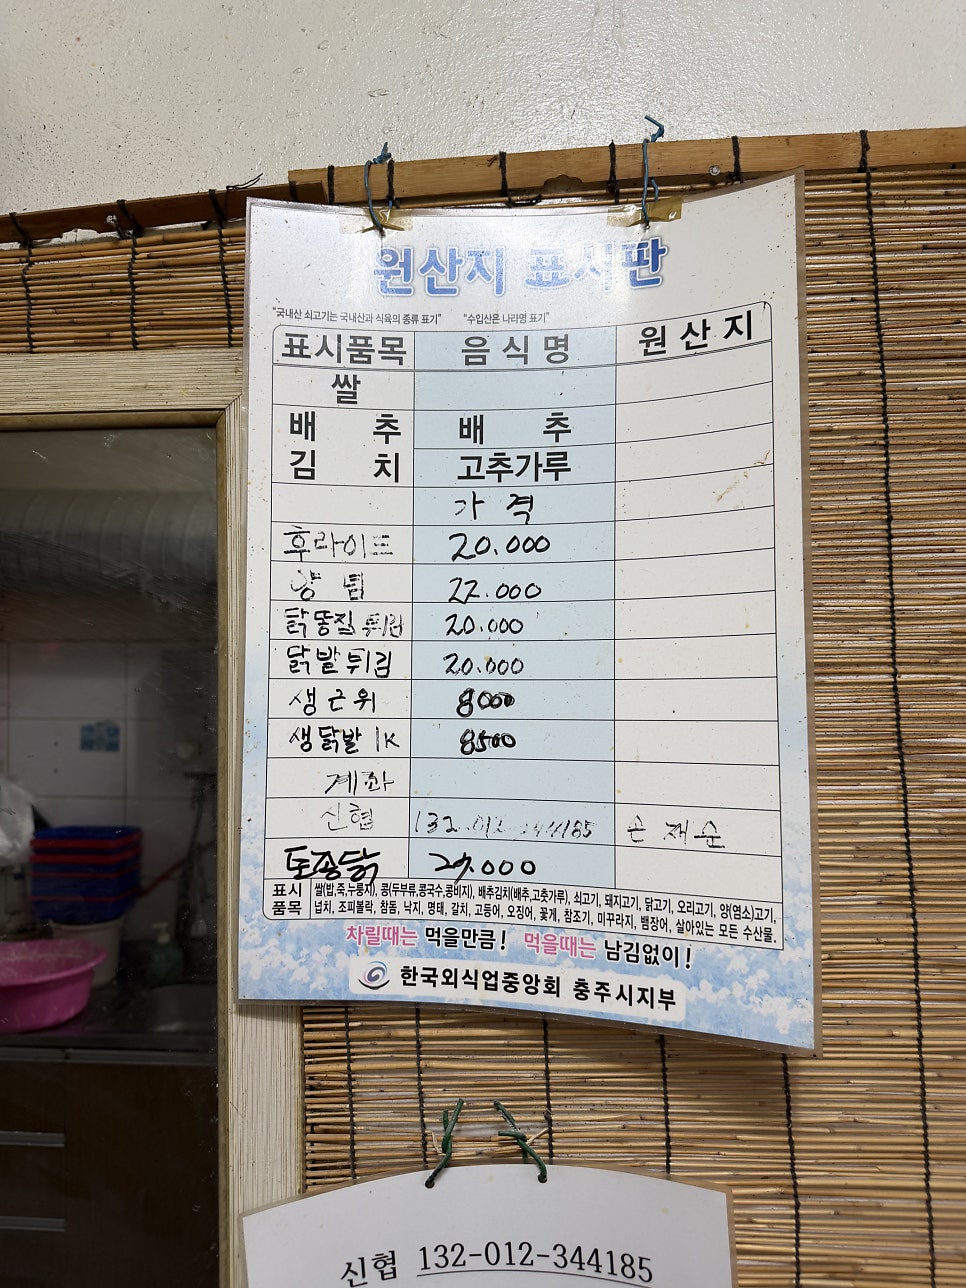 원산지 표시판
"국내산 쇠고기는 국내산과 식육의 종류 표기" "수입산은 나라명 표기"
표시품목 음식명 원산지
쌀
배 추 배 추
김 치 고추가루
가 격
후라이드 20.000
양 념 22.000
닭똥집 튀김 20.000
닭발튀김 20.000
생근위 8000
생닭발 1K 8500
계좌
신협 132-012-344185 손재순
토종닭 29.000
표시 쌀(밥,죽,누룽지), 콩(두부류,콩국수,콩비지), 배추김치(배추,고춧가루), 쇠고기, 돼지고기, 닭고기, 오리고기, 양(염소)고기,
품목 넙치, 조피볼락, 참돔, 낙지, 명태, 갈치, 고등어, 오징어, 꽃게, 참조기, 미꾸라지, 뱀장어, 살아있는 모든 수산물.
차릴때는 먹을만큼! 먹을때는 남김없이!
한국외식업중앙회 충주시지부
신협 132-012-344185